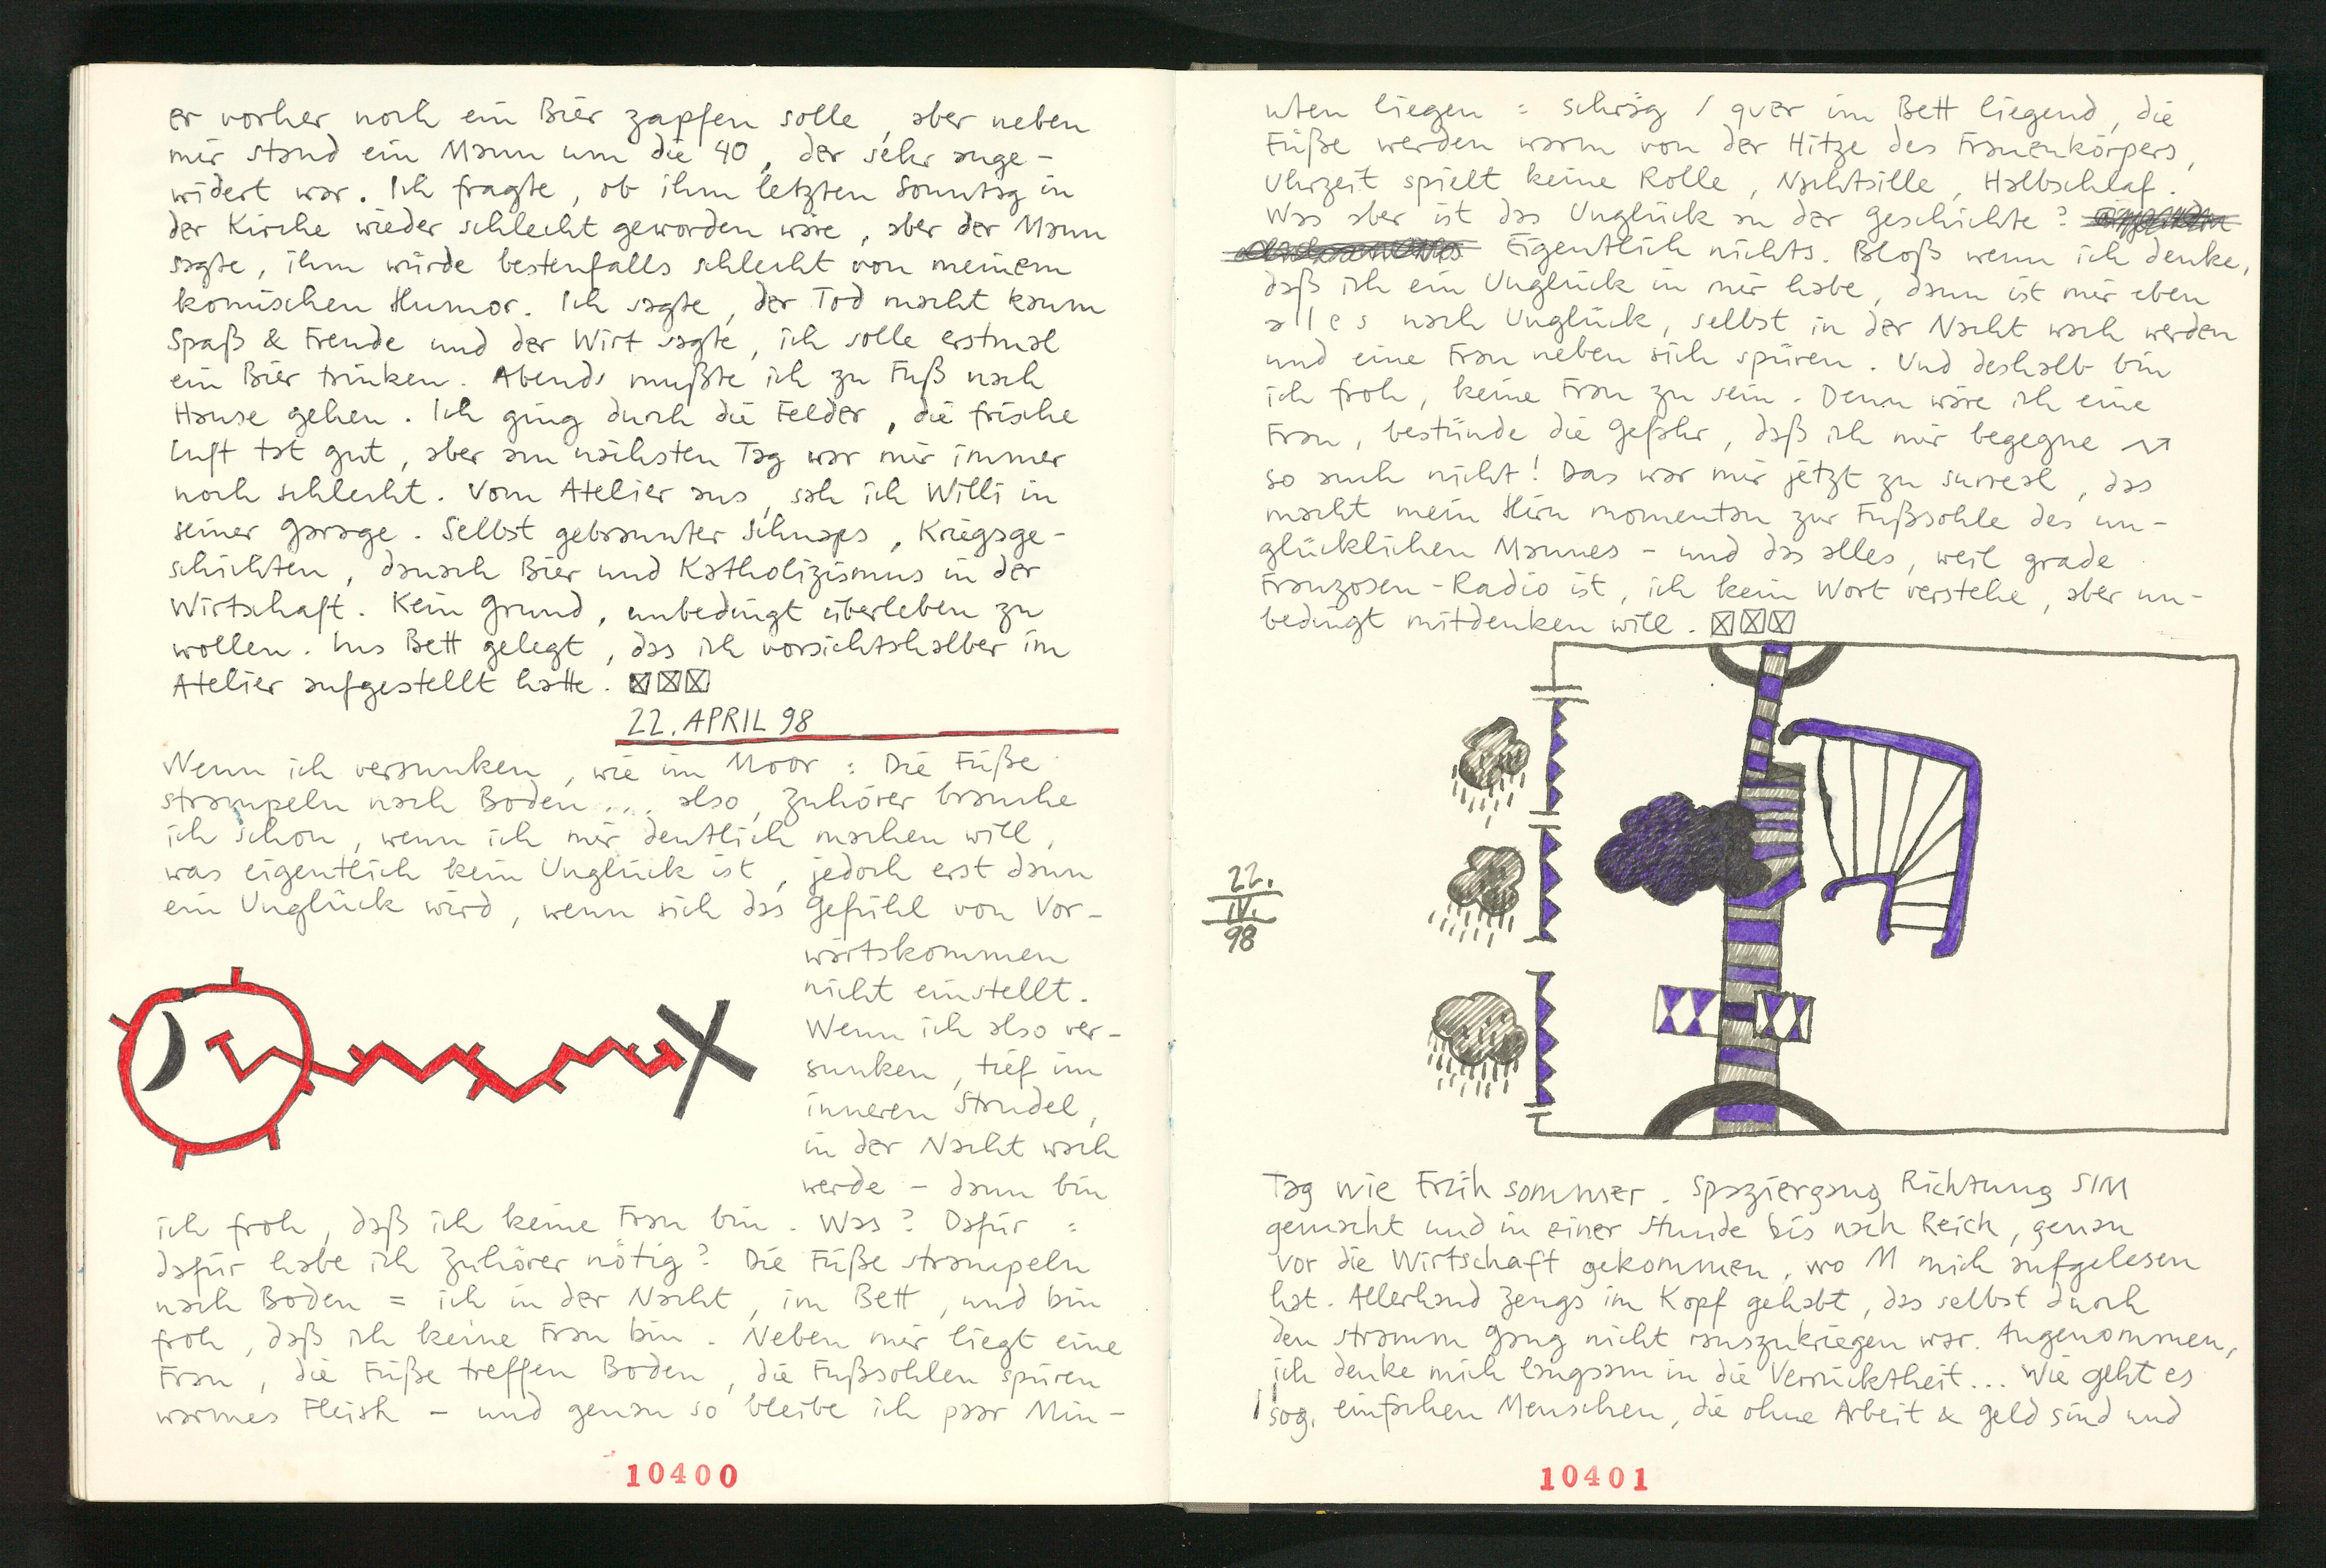 er vorher noch ein Bier zapfen solle, aber neben
mir stand ein Mann um die 40, der sehr ange-
widert war. Ich fragte, ob ihm letzten Sonntag in
der Kirche wieder schlecht geworden wäre, aber der Mann
sagte, ihm würde bestenfalls schlecht von meinem
komischen Humor. Ich sagte, der Tod macht kaum
Spaß & Freude und der Wirt sagte, ich solle erstmal
ein Bier trinken. Abends mußte ich zu Fuß nach
Hause gehen. Ich ging durch die Felder, die frische
Luft tat gut, aber am nächsten Tag war mir immer
noch schlecht. Vom Atelier aus, sah ich Willi in
seiner Garage. Selbst gebrannter Schnaps, Kriegsge-
schichten, danach Bier und Katholizismus in der
Wirtschaft. Kein Grund, unbedingt überleben zu
wollen. Ins Bett gelegt, das ich vorsichtshalber im
Atelier aufgestellt hatte.
22. APRIL 98
Wenn ich versunken, wie im Moor: Die Füße
strampeln nach Boden... also, Zuhörer brauche
ich schon, wenn ich mir deutlich machen will,
was eigentlich kein Unglück ist, jedoch erst dann
ein Unglück wird, wenn sich das Gefühl von Vor-
wärtskommen
nicht einstellt.
Wenn ich also ver-
sunken, tief im
inneren Strudel,
in der Nacht wach
werde - dann bin
ich froh, daß ich keine Frau bin. Was? Dafür:
dafür habe ich Zuhörer nötig? Die Füße strampeln
nach Boden = ich in der Nacht, im Bett, und bin
froh, daß ich keine Frau bin. Neben mir liegt eine
Frau, die Füße treffen Boden, die Fußsohlen spüren
warmes Fleish - und genau so bleibe ich paar Min-
10400
uten liegen = schräg / quer im Bett liegend, die
Füße werden warm von der Hitze des Frauenkörpers,
Uhrzeit spielt keine Rolle, Nachtsille, Halbschlaf.
Was aber ist das Unglück an der Geschichte?
Eigentlich nichts. Bloß wenn ich denke,
daß ich ein Unglück in mir habe, dann ist mir eben
alles nach Unglück, selbst in der Nacht wach werden
und eine Frau neben sich spüren. Und deshalb bin
ich froh, keine Frau zu sein. Denn wäre ich eine
Frau, bestünde die Gefahr, daß ich mir begegne
so auch nicht! Das war mir jetzt zu surreal, das
macht mein Hirn momentan zur Fußsohle des un-
glücklichen Mannes - und das alles, weil grade
Franzosen-Radio ist, ich kein Wort verstehe, aber un-
bedingt mitdenken will.
22.
IV.
98
Tag wie Frühsommer. Spaziergang Richtung SIM
gemacht und in einer Stunde bis nach Reich, genau
vor die Wirtschaft gekommen, wo M mich aufgelesen
hat. Allerhand Zeugs im Kopf gehabt, das selbst durch
den stramm Gang nicht rauszukriegen war. Angenommen,
ich denke mich langsam in die Verrücktheit... Wie geht es
sog. einfachen Menschen, die ohne Arbeit & Geld sind und
10401